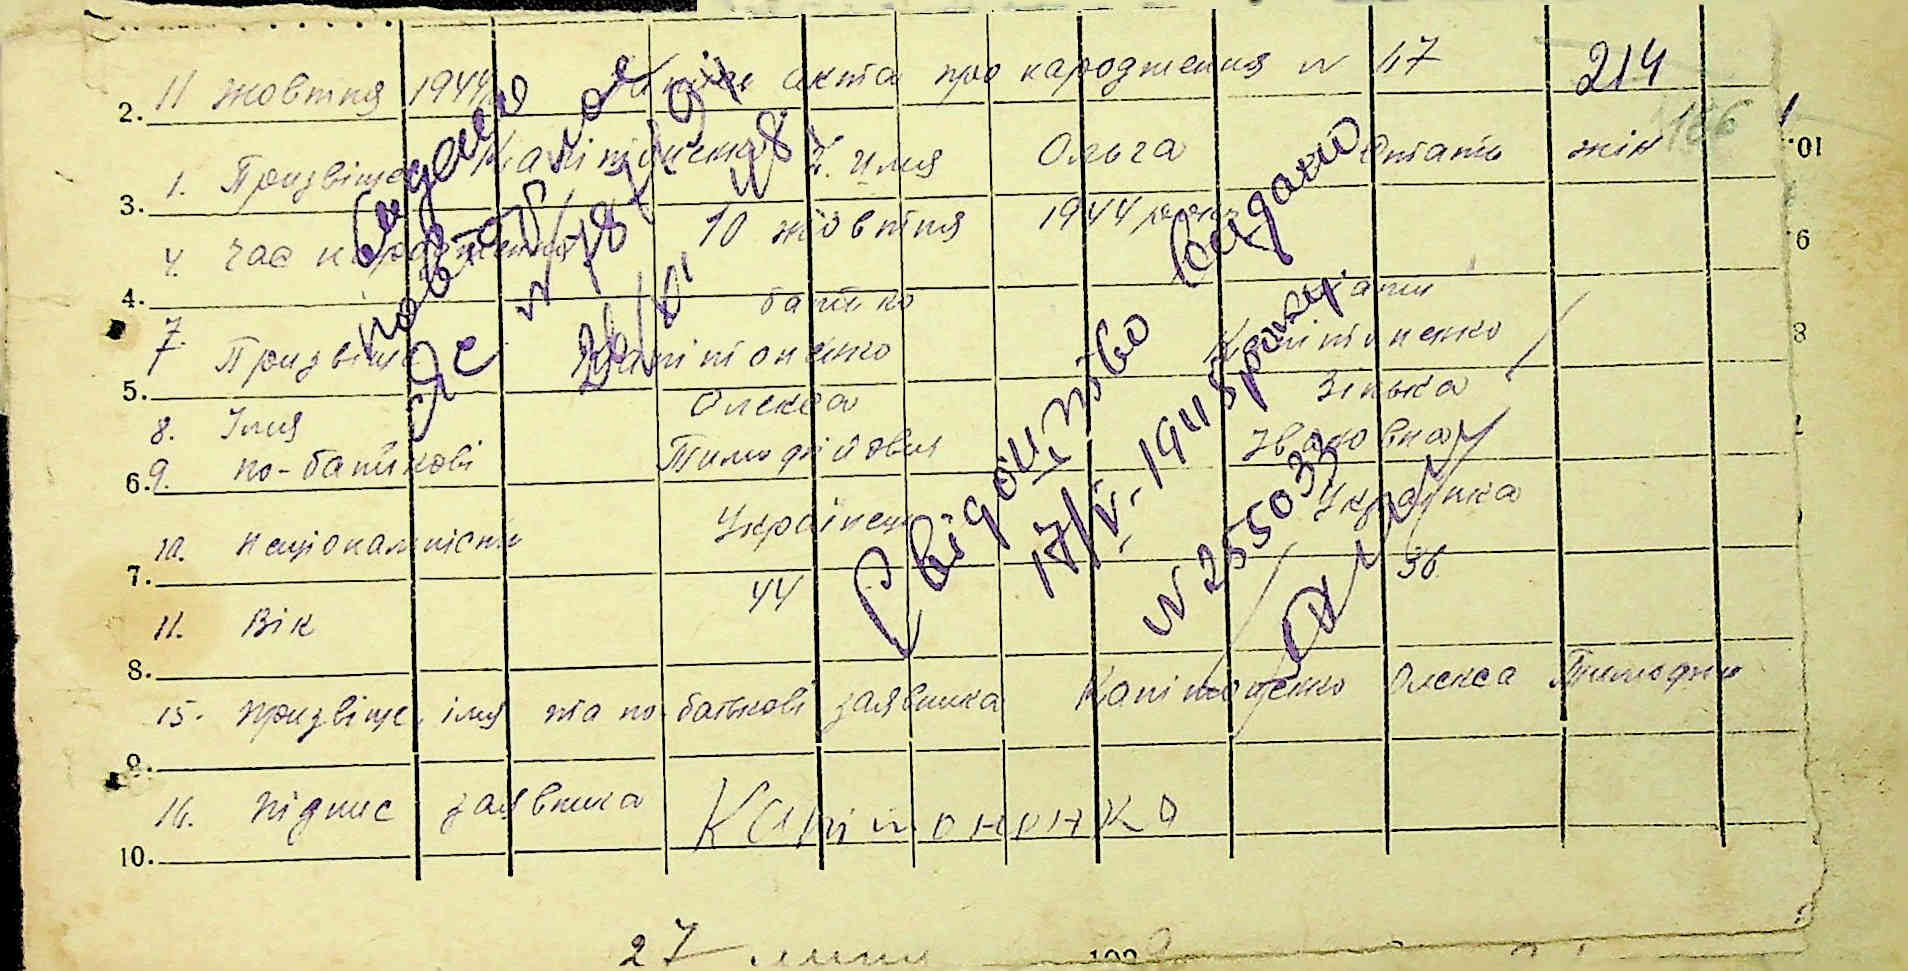 11 жовтня 1944 запис акта про народження № 47 214
186
1. Призвіще Капітоненко 2. імя Ольга Стать жін
4. час народження 10 жовтня 1944 року
батько мати
7. Призвіще Капітоненко Капітоненко
8. Імя Олекса Зінька
9. по-батькові Тимофійович Івановна
10. національність Українець Українка
11. Вік 44 36
15. призвіще, імя та по батькові заявника Капітоненко Олекса Тимофій
16. підпис заявника Капітоненко
видано
№ 18
Свідоцтво видано
17/V. 1945 року
№ 255033
2.
3.
4.
5.
6.
7.
8.
9.
10.
10.
9
8
27